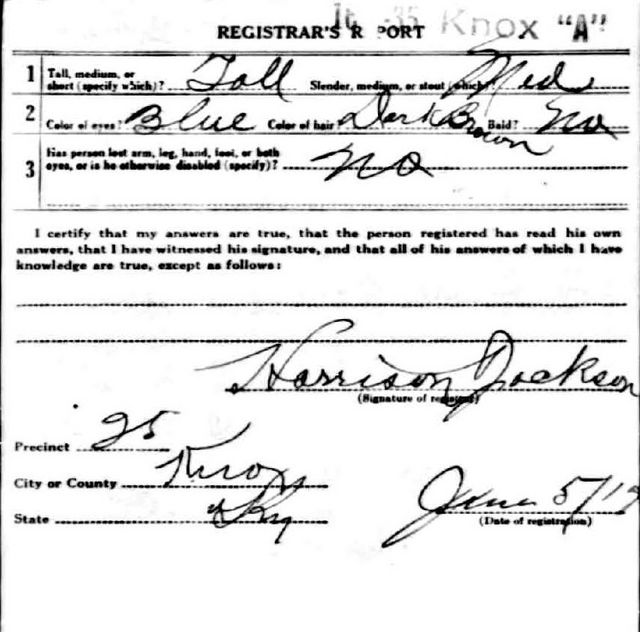 16 -35 Knox "A"
REGISTRAR'S R PORT
1 Tall, medium, or short (specify which)? Tall Slender, medium, or stout (which)? Med
2 Color of eyes? Blue Color of hair? Dark Brown Bald? No
3 Has person lost arm, leg, hand, foot, or both eyes, or is he otherwise disabled (specify)? No
I certify that my answers are true, that the person registered has read his own
answers, that I have witnessed his signature, and that all of his answers of which I have
knowledge are true, except as follows:
Harrison Jackson
(Signature of registrar)
Precinct 25
City or County Knox
State Ky
June 5/19
(Date of registration)